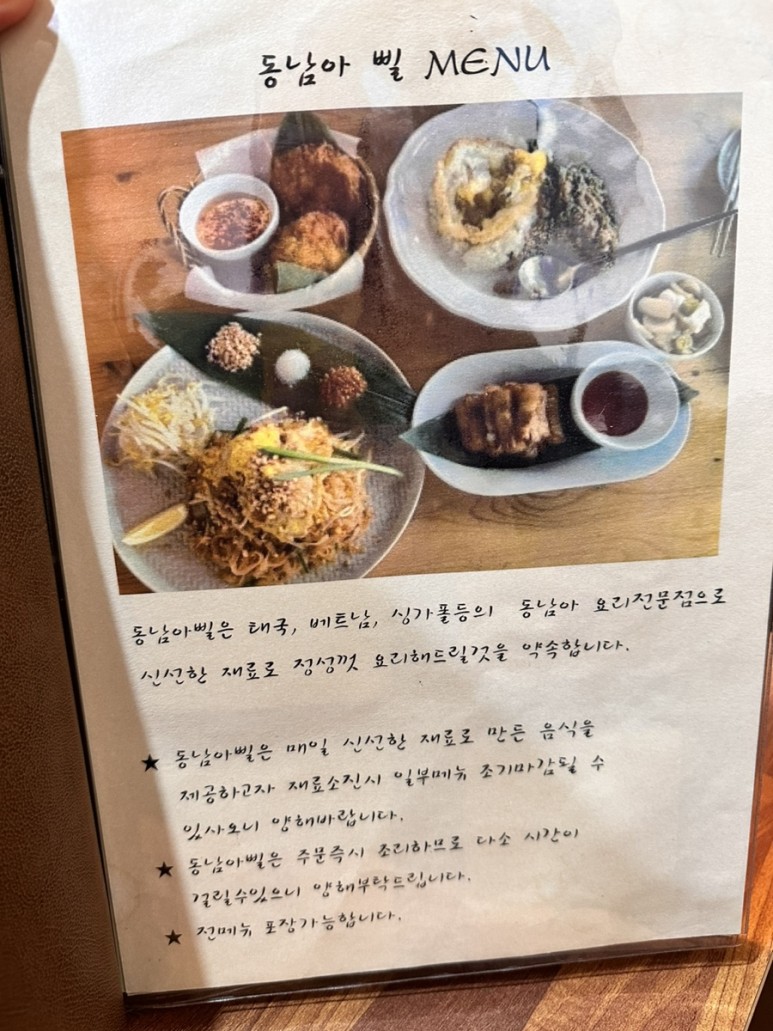 동남아 삘 MENU
동남아삘은 태국, 베트남, 싱가폴등의 동남아 요리전문점으로
신선한 재료로 정성껏 요리해드릴것을 약속합니다.
★ 동남아삘은 매일 신선한 재료로 만든 음식을
제공하고자 재료소진시 일부메뉴 조기마감될 수
있사오니 양해바랍니다.
★ 동남아삘은 주문즉시 조리하므로 다소 시간이
걸릴수있으니 양해부탁드립니다.
★ 전메뉴 포장가능합니다.